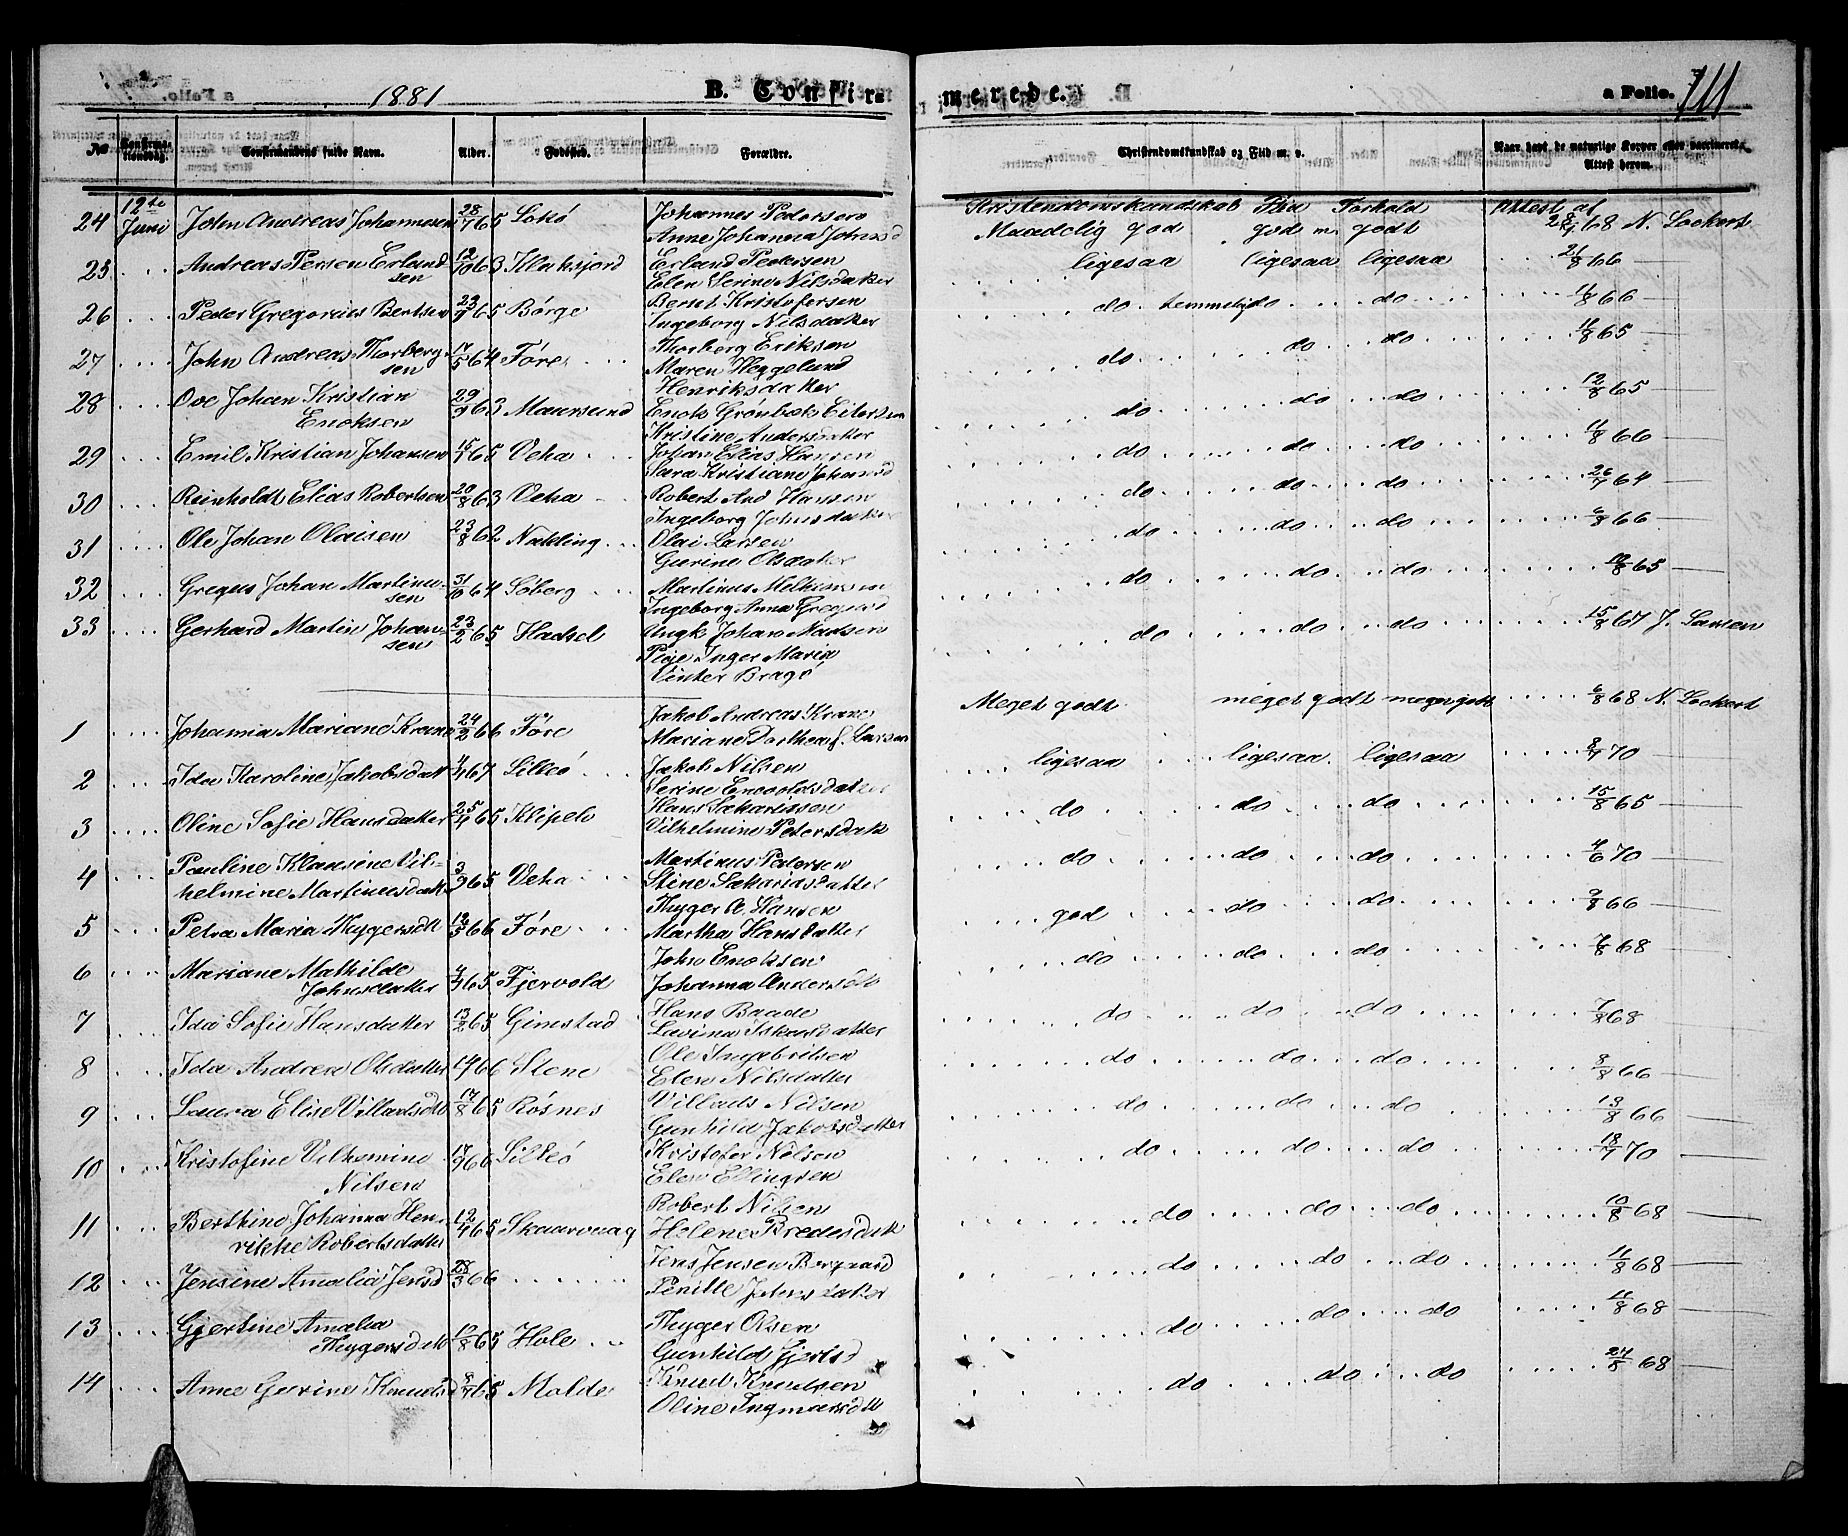 1881 B. Confirmerede. a Folio. 111
No Confirmationsdag. Confirmandens fulde Navn. Alder. Fødested. Forældre. Christendomskundskab og Flid m. v. Naar havt de naturlige Kopper eller vaccineret, Attest herom.
24 12te Juni John Andreas Johannesen 28/7 65 Sokø Johannes Pedersen Kristendomskundskab Flid Forhold Attest af
Anne Johanna Johnsd Maadelig god god m. godt 28/1 68 N. Lockert
25 Andreas Persen Erlandsen 12/10 63 Erland Pedersen ligesaa ligesaa ligesaa 21/8 66
Elen Serine Nilsdatter
26 Peder Gregorius Bertsen 23/9 65 Børge Bernt Kristofersen do temmelig do do 11/8 66
Ingeborg Nilsdatter
27 John Andreas Thorbergsen 17/5 64 Føre Thorberg Eriksen do do do 11/8 65
Maren Heggelund
Henriksdatter
28 Ove Johan Kristian Enoksen 29/9 63 Maursund Enok Grønbæk do do do 12/8 65
Kristine Andersdatter
29 Emil Kristian Johansen 15/7 65 Veha Johan Elias Hansen do do do 11/8 66
Sara Kristiane Johansd
30 Reinholdt Elias Robertsen 20/8 63 Veha Robert And Hansen do do do 26/7 64
Ingeborg Johnsdatter
31 Ole Johan Olaisen 23/8 62 Nakling Olai Larsen do do do 6/8 66
Gurine Olsdatter
32 Gregus Johan Martinusen 31/10 64 Søberg Martinus do do do 12/8 65
Ingeborg Anna Gregusd
33 Gerhard Martin Johansen 23/2 65 Hadsel Ungk Johan Madsen do do do 15/8 67 J. Larsen
Pige Inger Maria
Vinter Bragø
1 Johanna Mariane Krane 24/2 66 Føre Jakob Andreas Krane Meget godt meget godt meget godt 6/8 68 N. Lockert
Mariane Dorthea f. Larsen
2 Ida Karoline Jakobsdatt 4/4 67 Silleø Jakob Nilsen ligesaa ligesaa ligesaa 8/7 70
Serine
3 Oline Sofie Hansdatter 25/4 65 Klipels Hans Sakariassen do do do 15/8 65
Vilhelmine Petersdatt
4 Pauline Klausine Vilhelmine Martinusdatt 3/9 65 Veha Martinus Pedersen do do do 4/6 70
Stine Sakariasdatter
5 Petra Maria Thygersdtt 12/3 66 Føre Thyger A. Hansen god do do 9/8 66
Martha Hansdatter
6 Mariane Mathilde Johnsdatter 4/4 65 Fjervold John Enoksen do do do 7/8 68
Johanna Andersdtt
7 Ida Sofie Hansdatter 13/2 65 Gimstad Hans Baade do do do 7/8 68
Lavina Iskasdatter
8 Ida Andrea Olsdatter 66 Stene Ole Ingebrigtsen do do do 8/8 66
Elen Nilsdatter
9 Laura Elise Villadsdtt 17/8 65 Røsnes Villads Nilsen do do do 13/8 66
Gunhild Jakobsdatter
10 Kristofine Vilhelmine Nilsen 17/9 66 Silleø Kristofer Nilsen do do do 18/7 70
Elen Ellingsen
11 Berthine Johanna Henrikke Robertsdatter 12/4 65 Skaarvaag Robert Nilsen do do do 10/8 68
Helene Bredesdatt
12 Jensine Amalia Jensd 28/3 66 Jens Jensen do do do 11/8 68
Penille Johnsdatter
13 Gjertine Amalia Thygersdtt 12/8 65 Hole Thyger Olsen do do do 11/8 68
Gunhild Gjertsd
14 Anne Gurine Knudsd 8/7 65 Molde Knud Knudsen do do do 24/8 68
Oline Ingmarsdtt